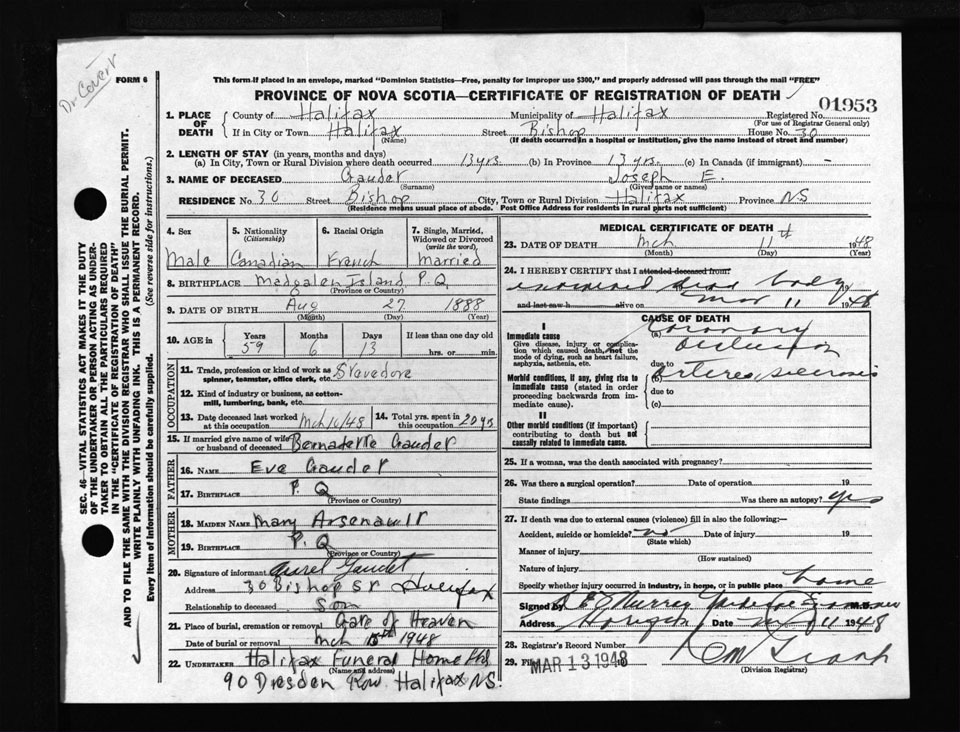 Dr Covert
FORM 6
This form if placed in an envelope, marked "Dominion Statistics—Free, penalty for improper use $300," and properly addressed will pass through the mail "FREE"
PROVINCE OF NOVA SCOTIA—CERTIFICATE OF REGISTRATION OF DEATH
01953
SEC. 46—VITAL STATISTICS ACT MAKES IT THE DUTY
OF THE UNDERTAKER OR PERSON ACTING AS UNDER-
TAKER TO OBTAIN ALL THE PARTICULARS REQUIRED
IN THE "CERTIFICATE OF REGISTRATION OF DEATH"
AND TO FILE THE SAME WITH THE DIVISION REGISTRAR WHO SHALL ISSUE THE BURIAL PERMIT.
WRITE PLAINLY WITH UNFADING INK. THIS IS A PERMANENT RECORD.
Every item of Information should be carefully supplied. (See reverse side for instructions.)
1. PLACE OF DEATH
County of Halifax Municipality of Halifax Registered No.
(For use of Registrar General only)
If in City or Town Halifax Street Bishop House No. 30
(Name) (If death occurred in a hospital or institution, give the name instead of street and number)
2. LENGTH OF STAY (in years, months and days)
(a) In City, Town or Rural Division where death occurred 13 yrs. (b) In Province 13 yrs. (c) In Canada (if immigrant) -
3. NAME OF DECEASED Gaudet Joseph E.
(Surname) (Given name or names)
RESIDENCE No. 30 Street Bishop City, Town or Rural Division Halifax Province N.S
(Residence means usual place of abode. Post Office Address for residents in rural parts not sufficient)
4. Sex
Male
5. Nationality
(Citizenship)
Canadian
6. Racial Origin
French
7. Single, Married,
Widowed or Divorced
(write the word)
Married
8. BIRTHPLACE Madgalen Island P.Q
(Province or Country)
9. DATE OF BIRTH Aug 27 1888
(Month) (Day) (Year)
10. AGE in
Years Months Days If less than one day old
59 6 13 hrs. or min.
OCCUPATION
11. Trade, profession or kind of work as Stevedore
spinner, teamster, office clerk, etc.
12. Kind of industry or business, as cotton-
mill, lumbering, bank, etc.
13. Date deceased last worked
at this occupation Mch 10/48
14. Total yrs. spent in
this occupation 20 yrs
15. If married give name of wife
or husband of deceased Bernadette Gaudet
FATHER
16. NAME Eve Gaudet
17. BIRTHPLACE P.Q
(Province or Country)
MOTHER
18. MAIDEN NAME Mary Arsenault
19. BIRTHPLACE P.Q
(Province or Country)
20. Signature of informant Aurel Gaudet
Address 30 Bishop St Halifax
Relationship to deceased Son
21. Place of burial, cremation or removal Gate of Heaven
Date of burial or removal Mch 15th 1948
22. UNDERTAKER Halifax Funeral Home Ltd.
(Name and address)
90 Dresden Row Halifax N.S.
MEDICAL CERTIFICATE OF DEATH
23. DATE OF DEATH Mch 11th 1948
(Month) (Day) (Year)
24. I HEREBY CERTIFY that I attended deceased from:
examined dead body 19
and last saw h alive on Mar 11 1948
CAUSE OF DEATH
I
Immediate cause
Give disease, injury or complica-
tion which caused death, not the
mode of dying, such as heart failure,
asphyxia, asthenia, etc.
(a) Coronary
occlusion
due to
Morbid conditions, if any, giving rise to
immediate cause (stated in order
proceeding backwards from im-
mediate cause).
(b) Arteriosclerosis
due to
(c)
II
Other morbid conditions (if important)
contributing to death but not
causally related to immediate cause.
25. If a woman, was the death associated with pregnancy?
26. Was there a surgical operation? Date of operation 19
State findings Was there an autopsy? yes
27. If death was due to external causes (violence) fill in also the following:—
Accident, suicide or homicide? no Date of injury 19
(State which)
Manner of injury
(How sustained)
Nature of injury
Specify whether injury occurred in industry, in home, or in public place home
Signed by Murray M.D.
Address Date 11 1948
28. Registrar's Record Number
29. Filed MAR 13 1948
(Division Registrar)